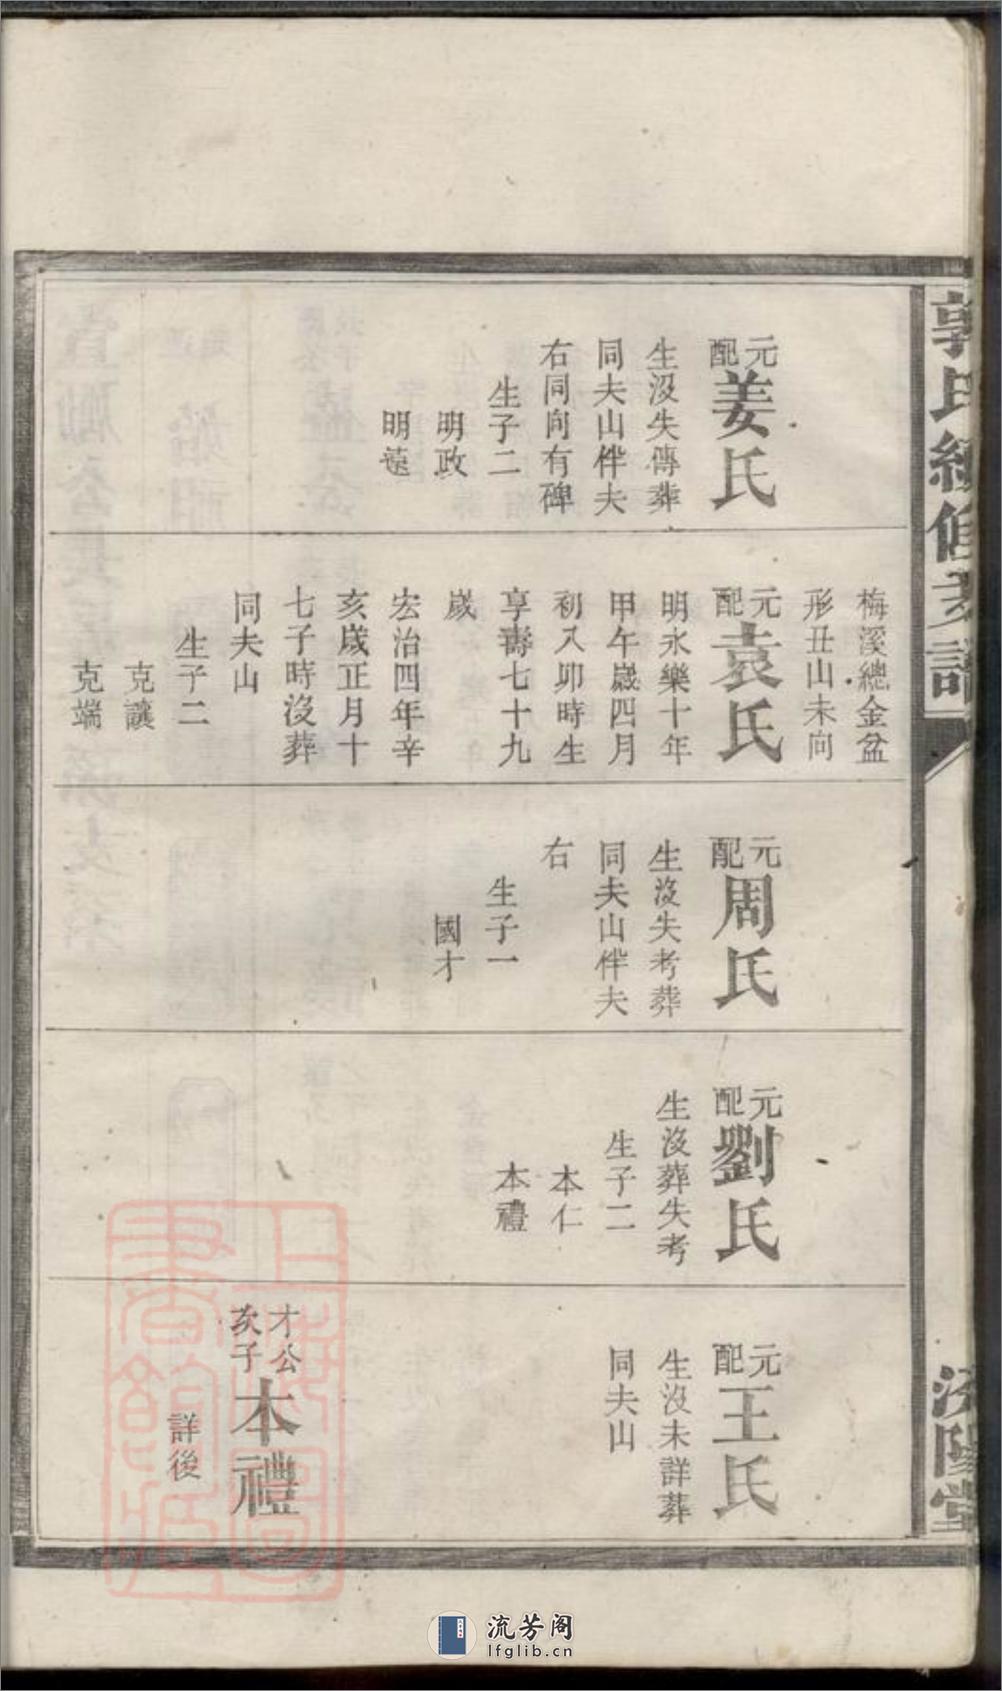 元配姜氏
生沒失傳葬
同夫山伴夫
右同向有碑
生子二
明政
明遠
梅溪總金盆
形丑山未向
元配袁氏
明永樂十年
甲午歲四月
初八卯時生
享壽七十九
歲
宏治四年辛
亥歲正月十
七子時沒葬
同夫山
生子二
克讓
克端
元配周氏
生沒失考葬
同夫山伴夫
右
生子一
國才
元配劉氏
生沒葬失考
生子二
本仁
本禮
元配王氏
生沒未詳葬
同夫山
才公次子本禮
詳後
郭氏續修支譜
汾陽堂
上海圖書館藏
流芳阁
lfglib.cn